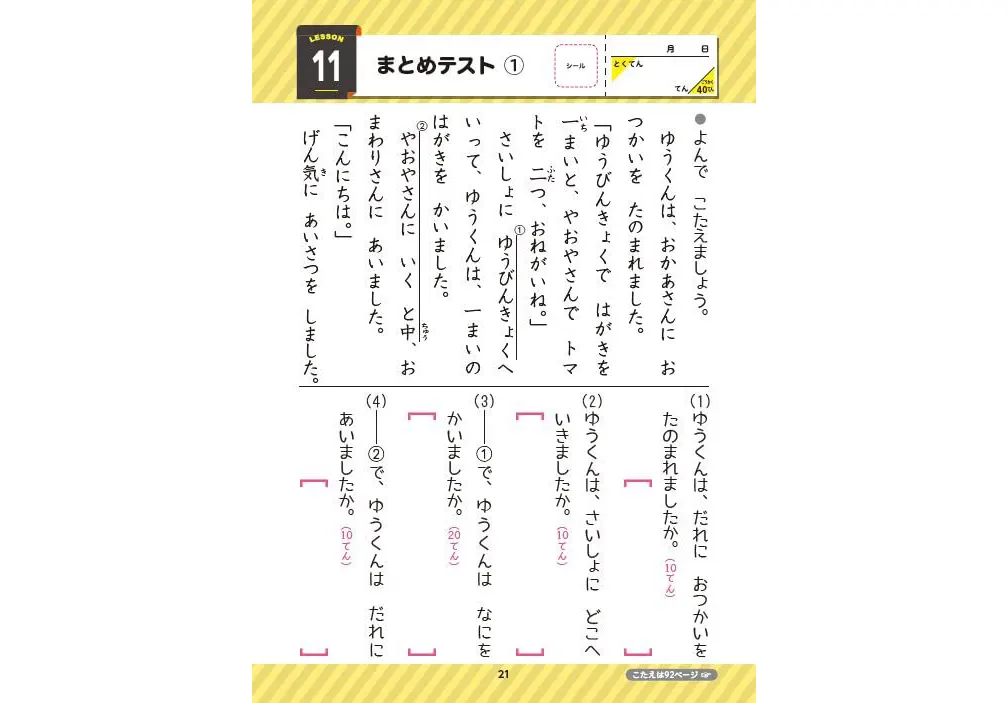 LESSON
11
まとめテスト ①
シール
月 日
とくてん
てん
ごうかく
40てん
● よんで こたえましょう。
ゆうくんは、おかあさんに お
つかいを たのまれました。
「ゆうびんきょくで はがきを
一まいと、やおやさんで トマ
いち
トを 二つ、おねがいね。」
ふた
さいしょに ゆうびんきょくへ
①
いって、ゆうくんは、一まいの
はがきを かいました。
やおやさんに いく と中、お
②
ちゅう
まわりさんに あいました。
「こんにちは。」
げん気に あいさつを しました。
き
(1) ゆうくんは、だれに おつかいを
たのまれましたか。(10てん)
(2) ゆうくんは、さいしょに どこへ
いきましたか。(10てん)
(3) ──①で、ゆうくんは なにを
かいましたか。(20てん)
(4) ──②で、ゆうくんは だれに
あいましたか。(10てん)
21
こたえは92ページ☞